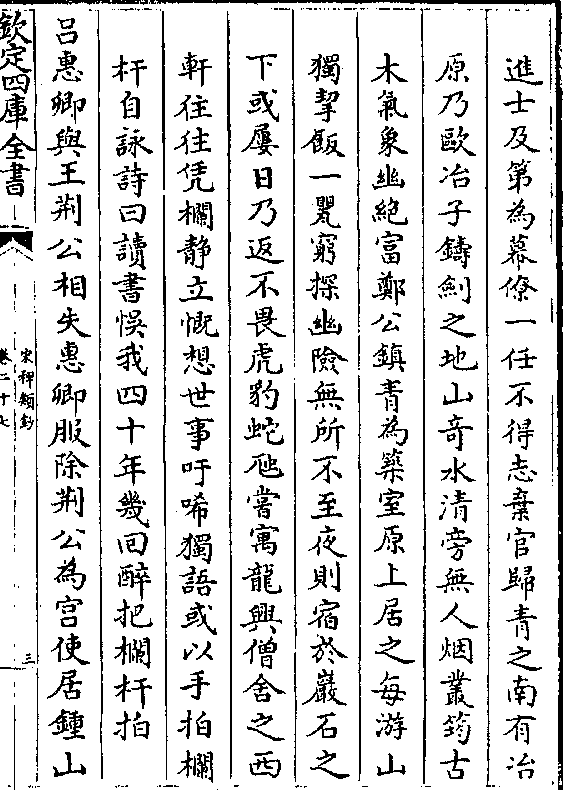 進士及第為幕僚一任不得志棄官歸青之南有冶
原乃歐冶子鑄劍之地山奇水清旁無人烟叢筠古
木氣象幽絶富鄭公鎮青為築室原上居之每游山
獨挈飯一甖窮探幽險無所不至夜則宿於巖石之
下或屢日乃返不畏虎豹蛇虺嘗寓龍興僧舍之西
軒往往凭欄静立慨想世事吁唏獨語或以手拍欄
杆自詠詩曰讀書悞我四十年幾回醉把欄杆拍
呂惠卿與王荆公相失惠卿服除荆公為宫使居鍾山
欽定四庫全書
宋稗類鈔
卷二十七
三